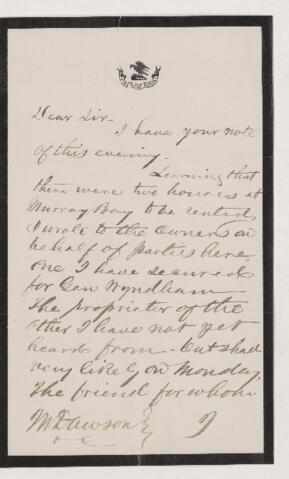 Dear Sir-
I have your note
of this evening.
Learning that
there were two houses at
Murray Bay to be rented,
I wrote to the owners on
behalf of parties here.
One I have secured
for Gen Wyndham-
The proprietor of the
other I have not yet
heard from - but shall
very likely on Monday.
The friend for whom
M Dawson
I